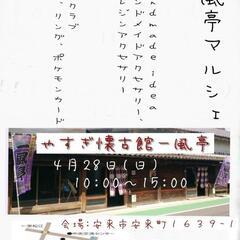 風亭マルシェ
ndmade idea
ンドメイドアクセサリー、
レジンアクセサリー
クラブ
、リング、ポケモンカード
やすぎ懐古館一風亭
4月28日(日)
10:00〜15:00
会場:安来市安来町1639-1